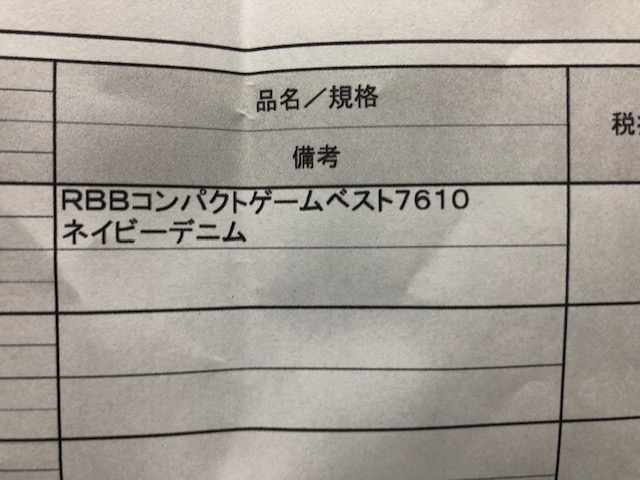 品名／規格
税
備考
RBBコンパクトゲームベスト7610
ネイビーデニム